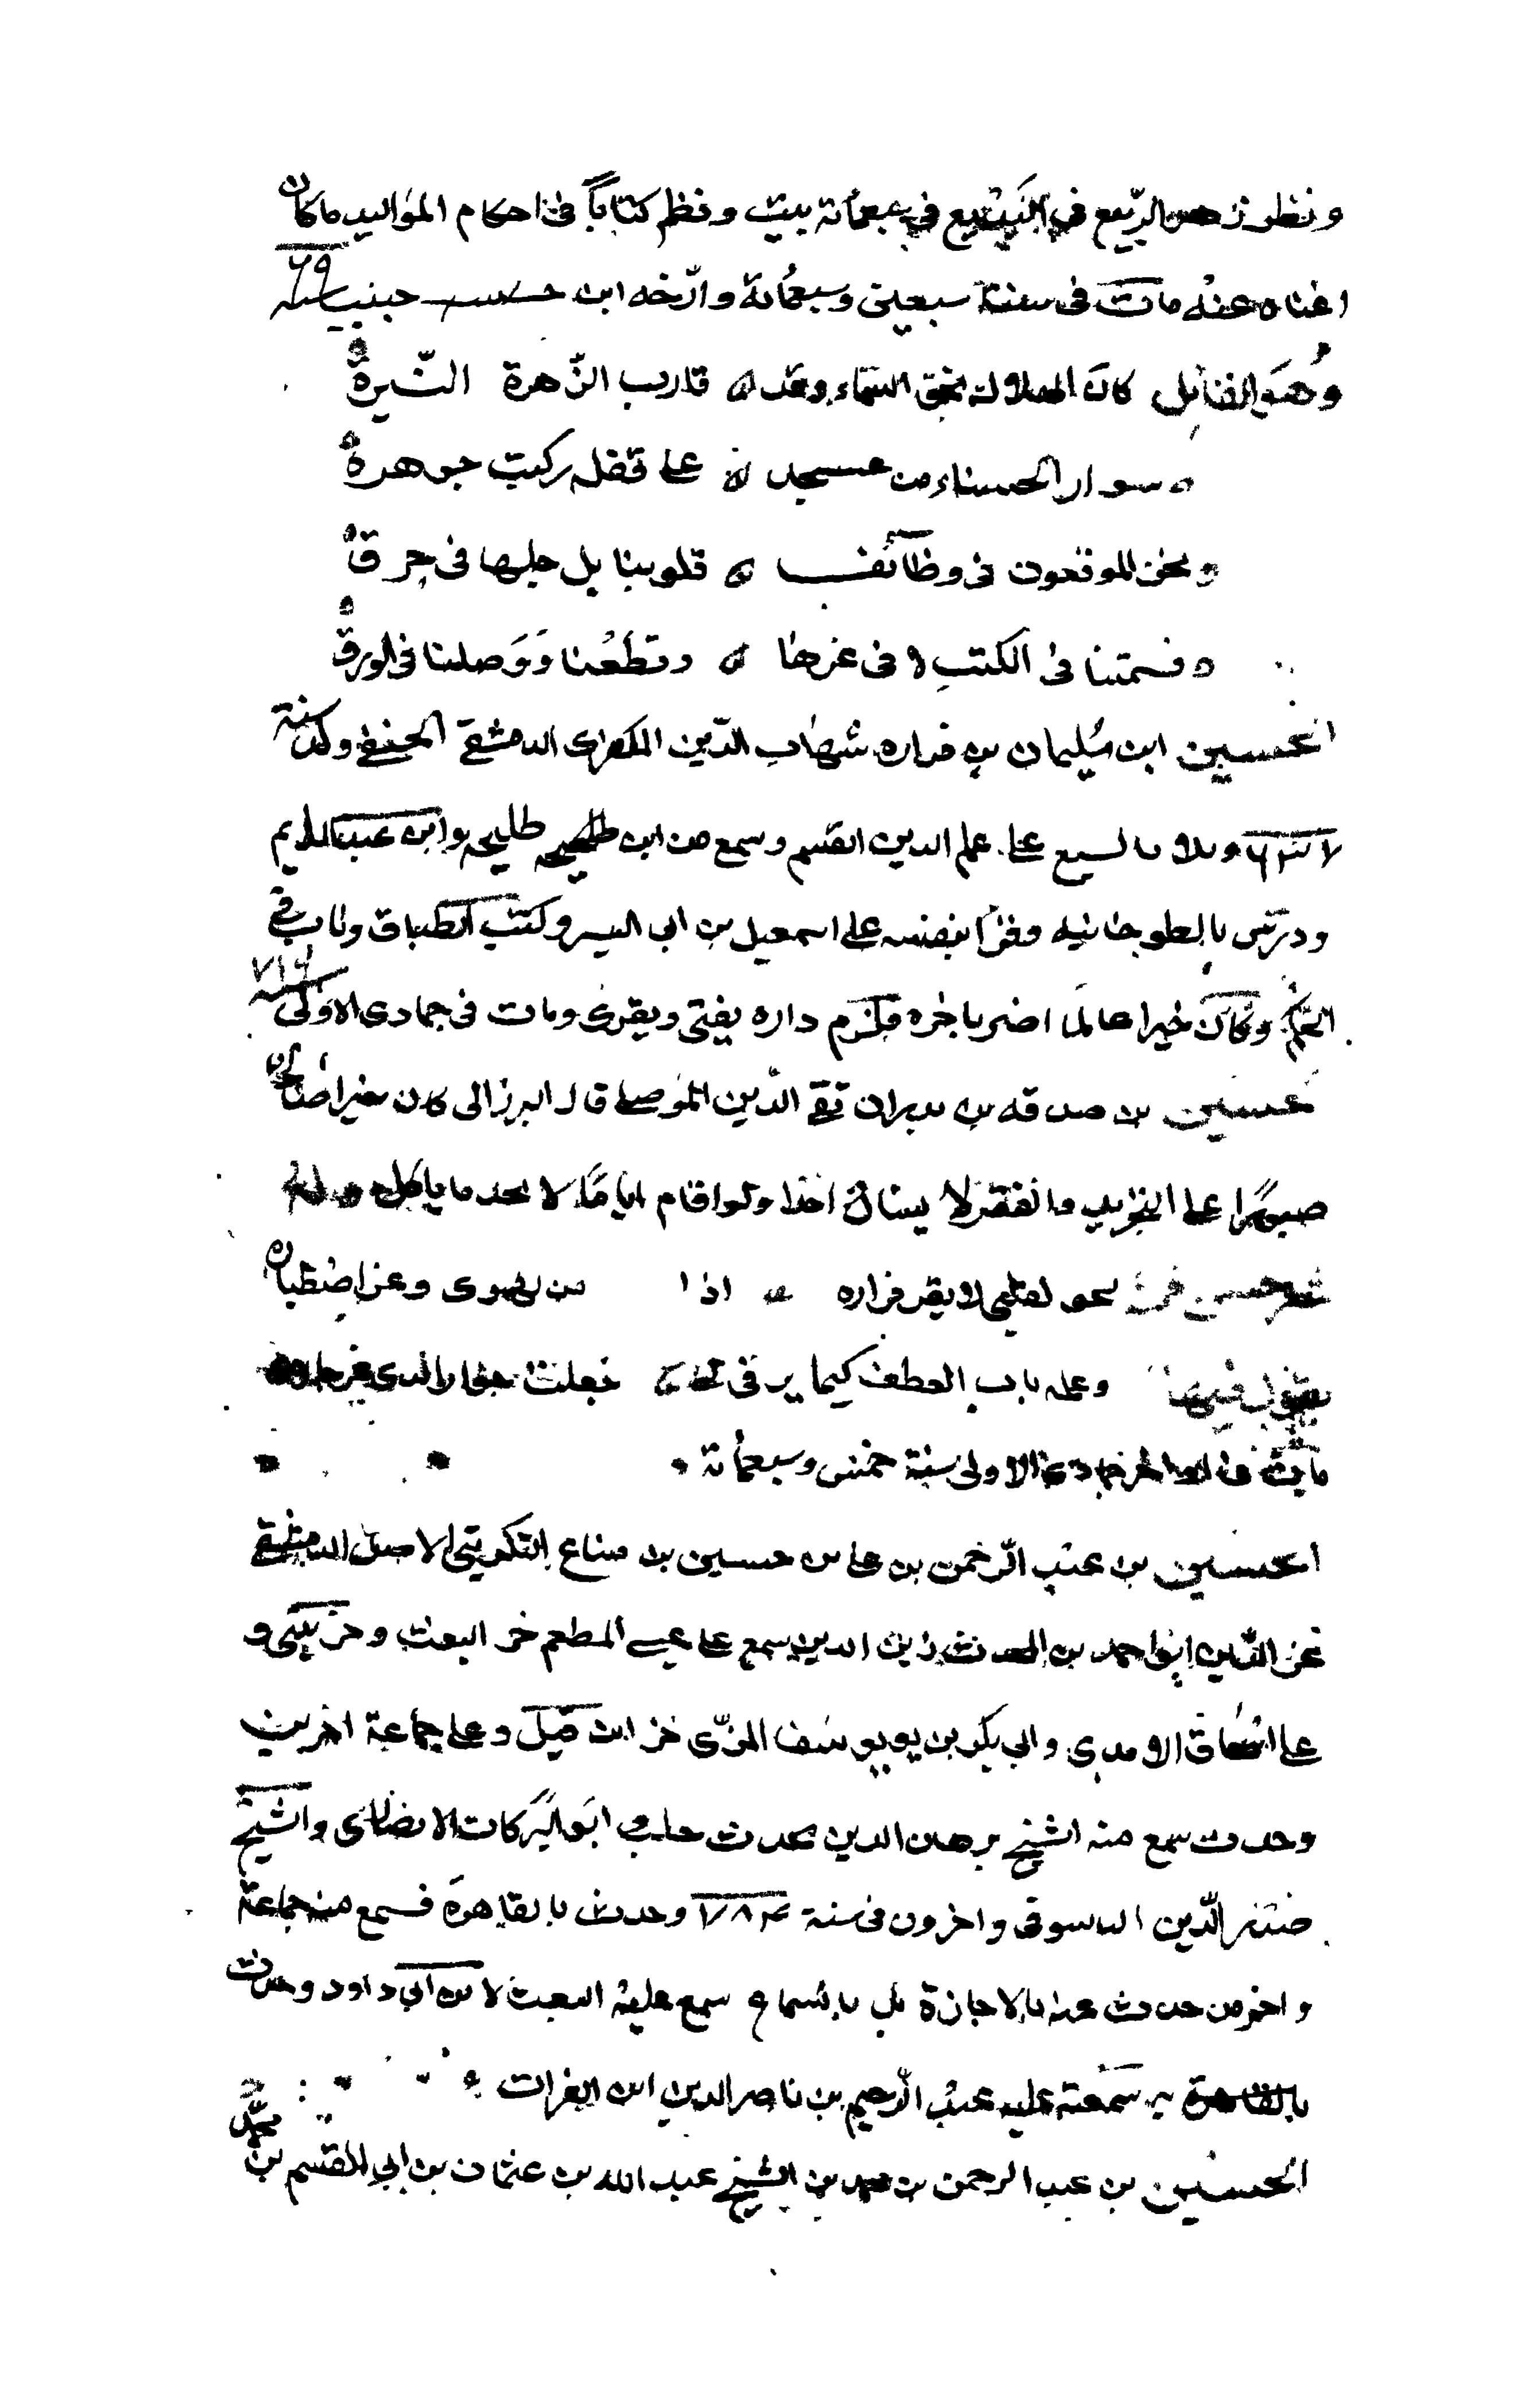 ونظم زهر الربيع في البديع في سبعمائة بيت ونظم كتاباً في احكام المواليد ما كان
اغناه عنه مات في سنة سبعين وسبعمائة وارّخه ابن حبيب سنة ٦٩
وهو القائل كان الهلال بأفق السماء وقد قارب الزّهرة النّيرة
سوار لحسناء من عسجد على قفله ركبت جوهرة
ونحن الموقعون في وظائف قلوبنا بل جلها في حرق
قسمتنا في الكتب لا في غيرها وقطعُنا وَوَصلنا في الورق
الحسين ابن سُليمان بن فزاره شهاب الدّين الكفرى الدمشقي الحنفي ولد سنة
وتلا بالسبع على علم الدين القسم وسمع من ابن طليحه وابن عبد الدايم
ودرّس بالطرخانيه وقرأ بنفسه على اسمعيل بن ابى اليسر وكتب الطباق وناب في
الحكم وكان خيرا عالما اضر باخره فلزم داره يفتي ويقرئ ومات في جمادى الاولى سنة
حسين بن صدقه بن بدران تقي الدّين الموصلي قال البرزالى كان خيرا صالحا
صبورًا على التجريد والفقر لا يسأل احدا ولو اقام اياما لا يجد ما ياكل وله
شعر حسن لقلبى لا يقر قراره اذا من يهوى وعز اصطباره
يقول فيها وعلم باب العطف كيما يرق لى فعلت
مات في اواخر جمادى الاولى سنة خمس وسبعمائة
الحسين بن عبد الرّحمن بن على بن حسين بن مناع التكريتي الاصل الدمشقي
عز الدّين ابن احمد بن المحدث زين الدين سمع على عيسى المطعم جز البعث وجز بيبى و
على اسحاق الامدي وابي بكر بن يوسف المزّى جز ابن فيل وعلى جماعة اخرين
وحدث سمع منه الشيخ برهان الدين محدث حلب وابو البركات الانصارى والشيخ
صدر الدّين الياسوفي واخرون في سنة ٧٨٣ وحدث بالقاهرة فسمع منه جماعة
واخر من حدث عنه بالاجازة بل بالسماع سمع عليه البعث لابن ابي داود وحدث
بالقاهرة سمعه عليه عبد الرّحيم بن ناصر الدين ابن الفرات
الحسين بن عبد الرحمن بن محمد بن الشيخ عبد الله بن عثمان بن ابي القسم بن محمّد